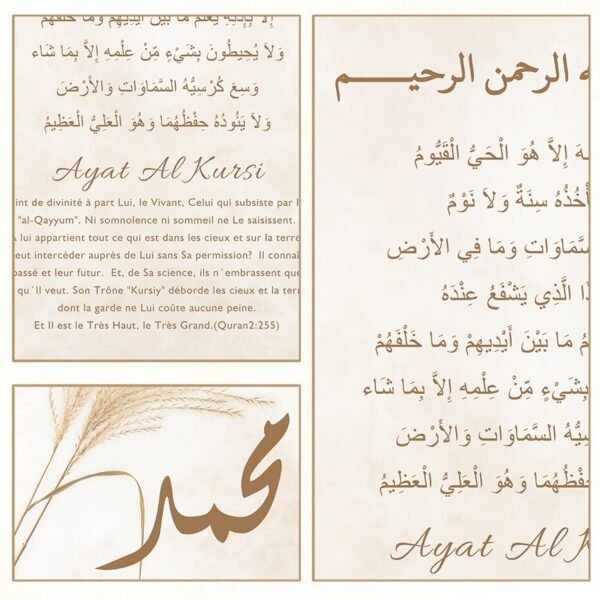 إِلاَّ بِإِذْنِهِ يَعْلَمُ مَا بَيْنَ أَيْدِيهِمْ وَمَا خَلْفَهُمْ
وَلاَ يُحِيطُونَ بِشَيْءٍ مِّنْ عِلْمِهِ إِلاَّ بِمَا شَاء
وَسِعَ كُرْسِيُّهُ السَّمَاوَاتِ وَالأَرْضَ
وَلاَ يَئُودُهُ حِفْظُهُمَا وَهُوَ الْعَلِيُّ الْعَظِيمُ
Ayat Al Kursi
int de divinité à part Lui, le Vivant, Celui qui subsiste par
"al-Qayyum". Ni somnolence ni sommeil ne Le saisissent.
lui appartient tout ce qui est dans les cieux et sur la terre
eut intercéder auprès de Lui sans Sa permission? Il connaî
passé et leur futur. Et, de Sa science, ils n´embrassent que
qu´Il veut. Son Trône "Kursiy" déborde les cieux et la terr
dont la garde ne Lui coûte aucune peine.
Et Il est le Très Haut, le Très Grand.(Quran2:255)
محمد
ه الرحمن الرحيم
ـهَ إِلاَّ هُوَ الْحَيُّ الْقَيُّومُ
ـأْخُذُهُ سِنَةٌ وَلاَ نَوْمٌ
سَّمَاوَاتِ وَمَا فِي الأَرْضِ
ذَا الَّذِي يَشْفَعُ عِنْدَهُ
مُ مَا بَيْنَ أَيْدِيهِمْ وَمَا خَلْفَهُمْ
بِشَيْءٍ مِّنْ عِلْمِهِ إِلاَّ بِمَا شَاء
ـيُّهُ السَّمَاوَاتِ وَالأَرْضَ
ـفْظُهُمَا وَهُوَ الْعَلِيُّ الْعَظِيمُ
Ayat Al K